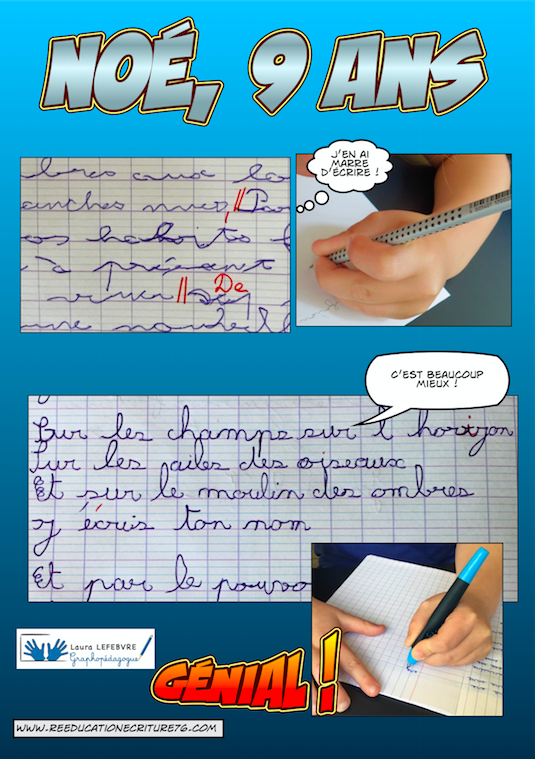 NOÉ, 9 ANS
J'EN AI
MARRE
D'ÉCRIRE !
bres aux
anches nues, //
os habits
à présent
// De
une
C'EST BEAUCOUP
MIEUX !
Sur les champs sur l'horizon
Sur les ailes des oiseaux
Et sur le moulin des ombres
J'écris ton nom
Et par le pouvoi
Laura LEFEBVRE
Graphopédagogue
GÉNIAL !
WWW.REEDUCATIONECRITURE76.COM